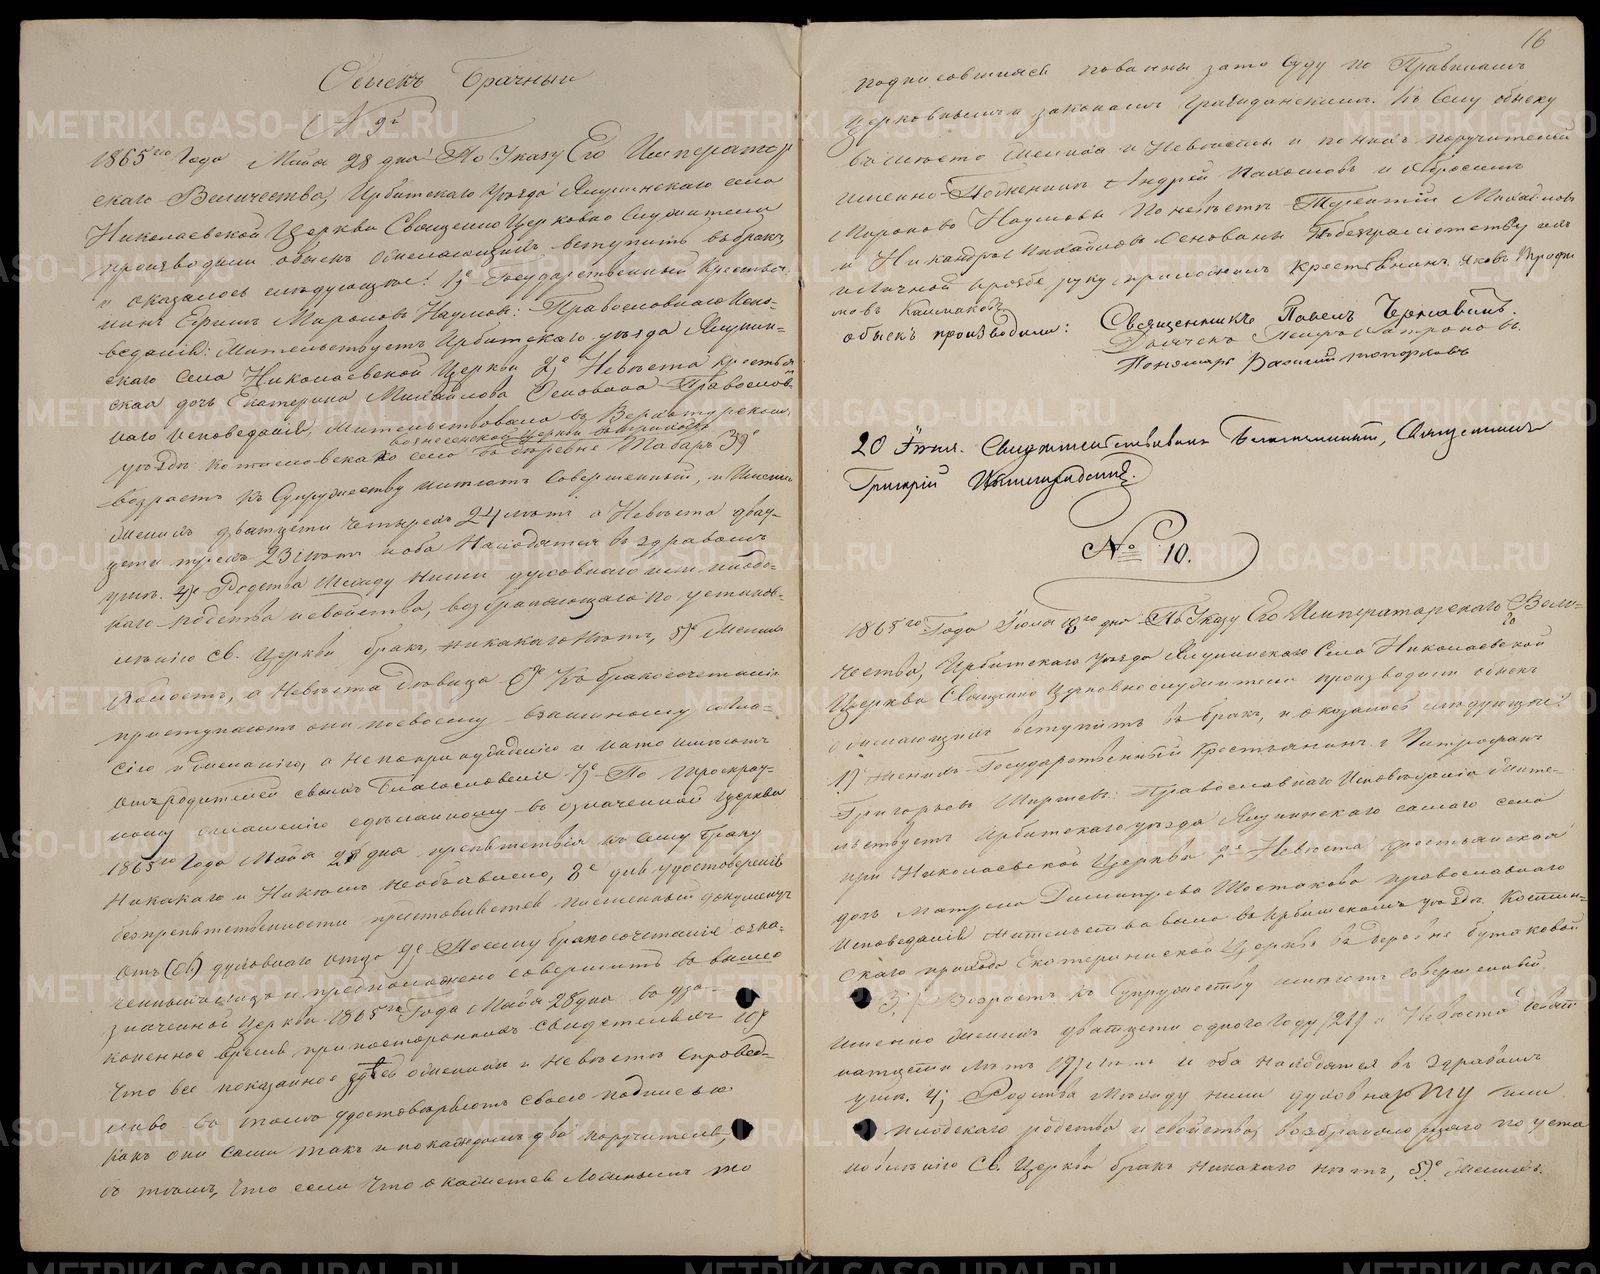 Обыскъ Брачный
№ 9й
1865го Года Мая 28 дня По Указу Его Император
скаго Величества, Ирбитскаго Уезда Ялунинскаго села
Николаевской Церкви Священно Церковно Служители
производили обыскъ о желающихъ вступить въ бракъ,
и оказалось следующее: 1е Государственный Крестья-
нинъ Ефимъ Мироновъ Наумовъ: Православнаго Испо-
веданія: Жительствуетъ Ирбитскаго уезда Ялунин-
скаго Села Николаевской Церкви 2е Невеста крестьян
ская дочь Екатерина Михайлова Оснвана Православ-
наго Исповеданія, Жительствовала въ Верхотурскомъ
вознесенской церкви
уездѣ села въ деревне Табаръ 3е
возрастъ къ Супружеству имеютъ Совершенный, и Именно
женихъ дватцети четырехъ 24 летъ а Невеста двад-
цети трехъ 23 летъ и оба Находятся въ здравомъ
уме. 4е Родства Между ними духовнаго или плотс-
каго родства и свойства, возбраняющаго по установ-
ленію Св. Церкви бракъ, никакаго нетъ, 5е Женихъ
Холостъ, а Невеста девица 6е Къ бракосочетанію
приступаютъ они по своему взаимному согла-
сію и желанію, а Не по принужденію и на то имеютъ
отъ родителей своихъ Благословеніе 7е По троекрат-
ному оглашенію сделанному въ означенной Церкви
1865го Года Мая 28 дня препятствія къ сему браку
Никакаго и Никемъ необъявлено, 8е для удостоверенія
безпрепятственности представляется писменный документъ
отъ духовнаго отца 9е Посему бракосочетаніе озна-
ченныхъ лицъ и предположено совершить въ выше
значенной Церкви 1865го Года Мая 28 дня въ уза-
коненное время при постороннихъ свидетеляхъ 10е
Что все показанное здѣсь о женихе и Невесте справед-
ливо въ томъ удостоверяютъ своею подписью
какъ они сами такъ и по каждомъ два поручителя,
въ томъ, что если что окажется Ложнымъ то
16
подписовшияся повинны за то суду по Правиламъ
Церковнымъ и законамъ Гражданскимъ. Къ Сему обыску
въ место Жениха и Невесты и по нихъ поручителей
именно По женихе Андрей Пахомовъ и Абросимъ
Мироновъ Наумовы По невесте Терентій Михайловъ
и Никандръ Михайловъ По безграмотству ихъ
и личной прозбе руку приложилъ крестьянинъ Яковъ Трофи
мовъ Калмаковъ
обыскъ производили: Священникъ Павелъ Чернавинъ.
Дьячекъ
Пономарь Василий Топорковъ
20 Іюня. Свидѣтельствовалъ Благочинный, Священникъ
Григорій
№ 10.
1865го Года Іюля 8го дня По Указу Его Императорскаго Вели-
чества, Ирбитскаго уезда Ялунинскаго Села Николаевской
Церкви Священно Церковнослужители производили обыск
о желающихъ вступить въ бракъ, и оказалось следующее:
1е Женихъ Государственный Крестьянинъ Митрофанъ
Григорьевъ Ширшевъ: Православнаго Исповеданія Жите-
льствуетъ Ирбитскаго уезда Ялунинскаго самаго села
при Николаевской Церкви 2е Невеста крестьянская
дочь Матрена Димитрева Шостакова православнаго
Исповеданія Жительствовала въ Ирбитскомъ уездѣ Костин-
скаго прихода Екатерининской Церкви въ деревне Бутаковой
3е Возрастъ къ Супружеству имеютъ совершенный,
именно женихъ дватцети одного году /21/ а Невеста девят
натцети летъ 19 летъ и оба находятся въ здравомъ
уме. 4е Родства Между ними духовнаго или
плотскаго родства и свойства, возбраняющаго по уста
новленію Св. Церкви бракъ никакаго нетъ, 5е Женихъ